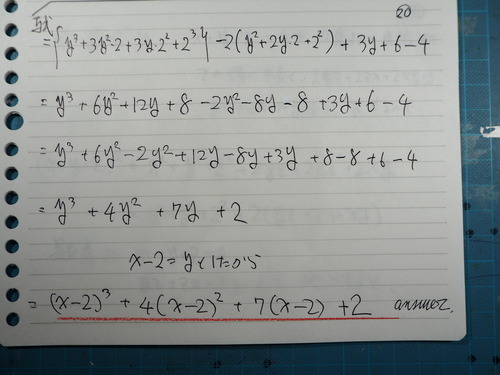 20
与式
= {y³+3y²·2+3y·2²+2³} -2(y²+2y·2+2²) +3y+6-4
= y³+6y²+12y+8-2y²-8y-8+3y+6-4
= y³+6y²-2y²+12y-8y+3y+8-8+6-4
= y³+4y²+7y+2
x-2=yより
= (x-2)³+4(x-2)²+7(x-2)+2 answer.